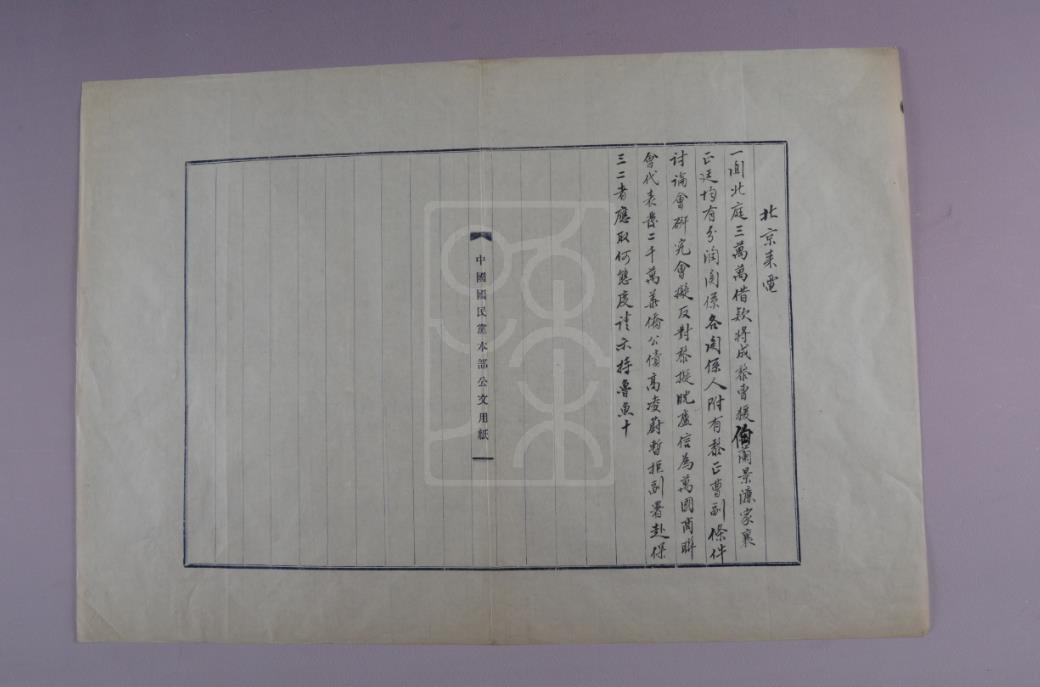 北京来電
一聞北庭三萬萬借欵將成黎曹援伯蘭景濂家襄
正廷均有分潤関係各関係人附有黎正曹副條件
討論會研究會擬反對黎擬脱盧信為萬国商聯
會代表募二千萬華僑公債高凌蔚暫拒副署赴保
三二者應取何態度請示持魯魚十
中國國民黨本部公文用紙